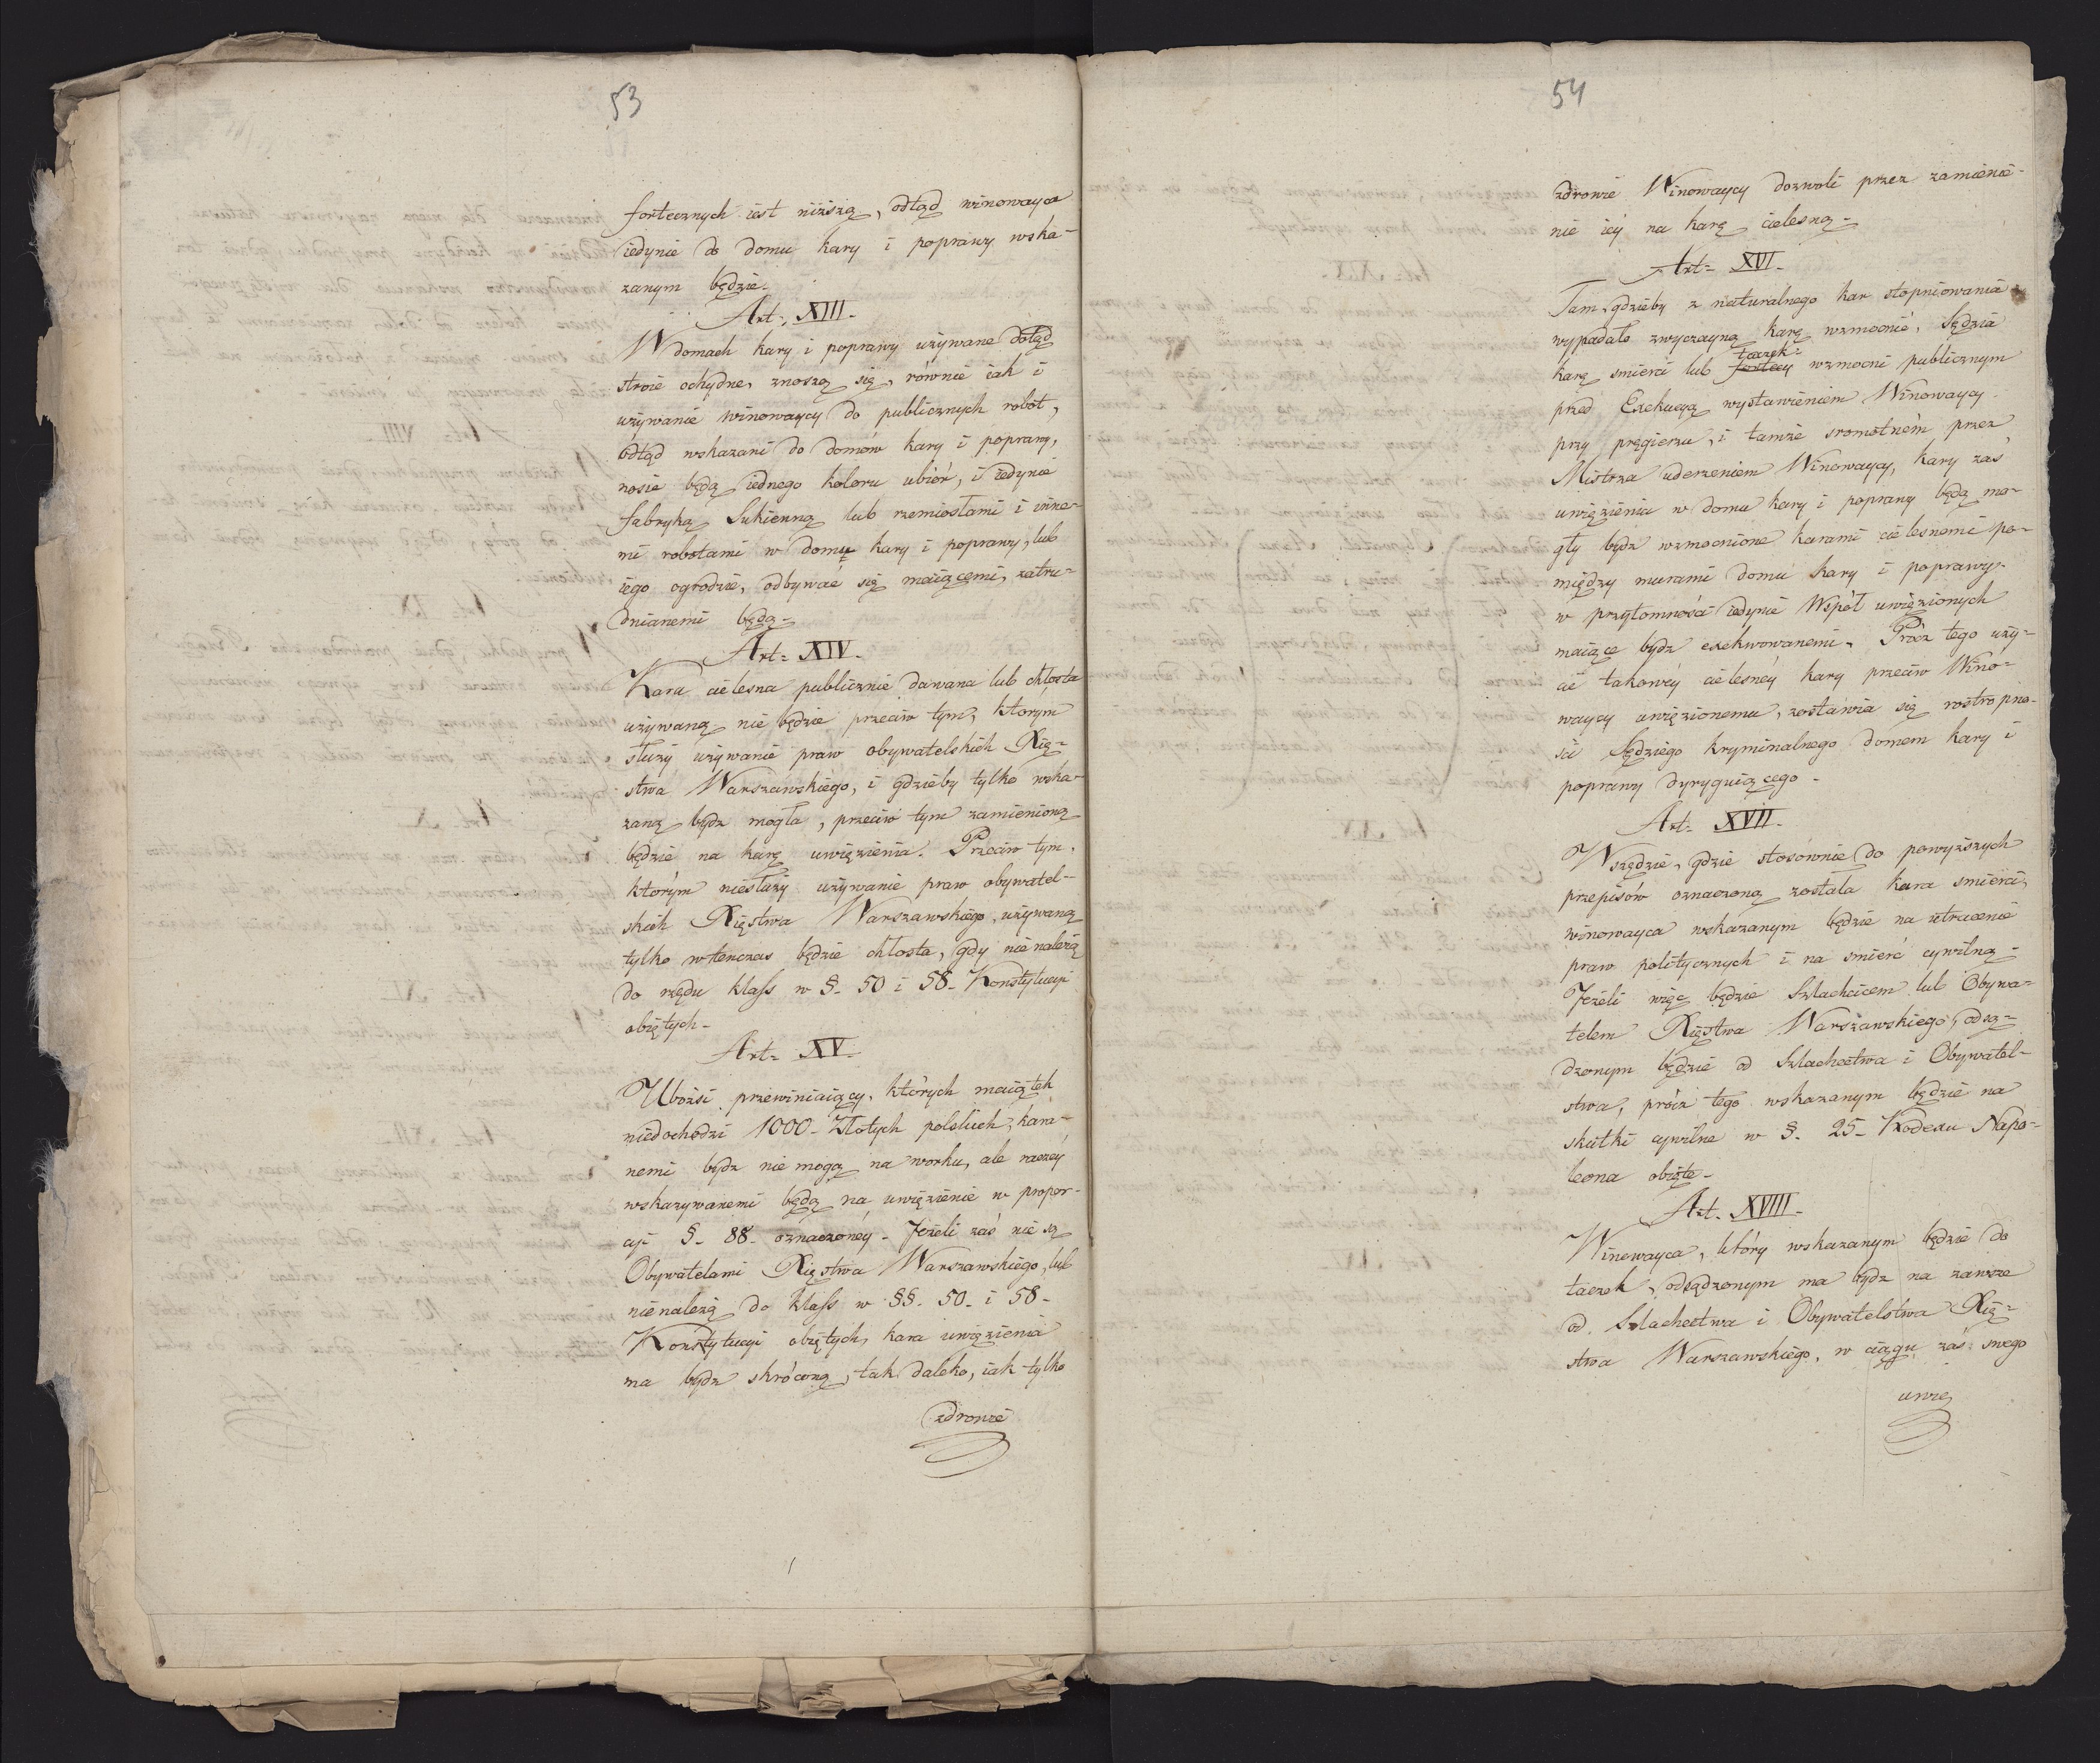 53
fortecznych iest niższą, odtąd winowayca
iedynie do domu kary i poprawy wska-
zanym będzie.
Art. XIII.
W domach kary i poprawy używane dotąd
stroie ochydne, znoszą się, równie iak i
używanie winowaycy do publicznych robót,
odtąd wskazani do domów kary i poprawy,
nosić będą iednego koloru ubiór, i iedynie
fabryką Sukienną lub rzemiosłami i inne-
mi robotami w domu kary i poprawy, lub
iego ogrodzie, odbywać się maiącemi, zatru-
dnianemi będą-
Art- XIV-
Kara cielesna publicznie dawana lub chłosta
używaną nie będzie przeciw tym, którym
służy używanie praw obywatelskich Xię-
stwa Warszawskiego, i gdzieby tylko wska-
zaną bydź mogła, przeciw tym zamienioną
będzie na karę uwięzienia. Przeciw tym,
którym niesłuży używanie praw obywatel-
skich Xięstwa Warszawskiego, używaną
tylko wtenczas będzie chłosta, gdy nie należą
do rzędu klass w §- 50 i 58- Konstytucyi
obiętych-
Art- XV-
Ubożsi przewiniaiący, których maiątek
niedochodzi 1000- Złotych polskich, kara-
nemi bydź nie mogą na worku, ale raczey
wskazywanemi będą na uwięzienie w propor-
cyi §- 88- oznaczoney- Jeżeli zaś nie są
Obywatelami Xięstwa Warszawskiego, lub
nienależą do klass w §§- 50- i 58-
Konstytucyi obiętych, kara uwięzienia
ma bydź skróconą, tak daleko, iak tylko
zdrowie
54
zdrowie Winowaycy dozwoli przez zamienie-
nie iey na karę cielesną-
Art- XVI-
Tam, gdzieby z naturalnego kar stopniowania
wypadało zwyczayną karę wzmocnić, Sędzia
taczek
karę śmierci lub fortecy wzmocni publicznym
przed Exekucyą wystawieniem Winowaycy
przy pręgierzu, i tamże sromotném przez
Mistrza uderzeniem Winowaycy, kary zaś
uwięzienia w domu kary i poprawy będą mo-
gły bydź wzmocnione karami cielesnemi po-
między murami domu kary i poprawy
w przytomności iedynie Współ uwięzionych
maiące bydź exekwowanemi. Prócz tego uży-
cie takowéy cielesnéy kary przeciw Wino-
waycy uwięzionemu, zostawia się roztropno-
ści Sędziego kryminalnego domem kary i
poprawy dyryguiącego-
Art- XVII-
Wszędzie, gdzie stosownie do powyższych
przepisów oznaczoną została kara śmierci,
winowayca wskazanym będzie na utracenie
praw politycznych i na śmierć cywilną-
Jeżeli więc będzie Szlachcicem lub Obywa-
telem Xięstwa Warszawskiego, odsą-
dzonym będzie od Szlachectwa i Obywatel-
stwa, prócz tego wskazanym będzie na
skutki cywilne w §- 25- Kodexu Napo-
leona obięte-
Art- XVIII-
Winowayca, który wskazanym będzie do
taczek, odsądzonym ma bydź na zawsze
od Szlachectwa i Obywatelstwa Xię-
stwa Warszawskiego, w ciągu zaś swego
uwię